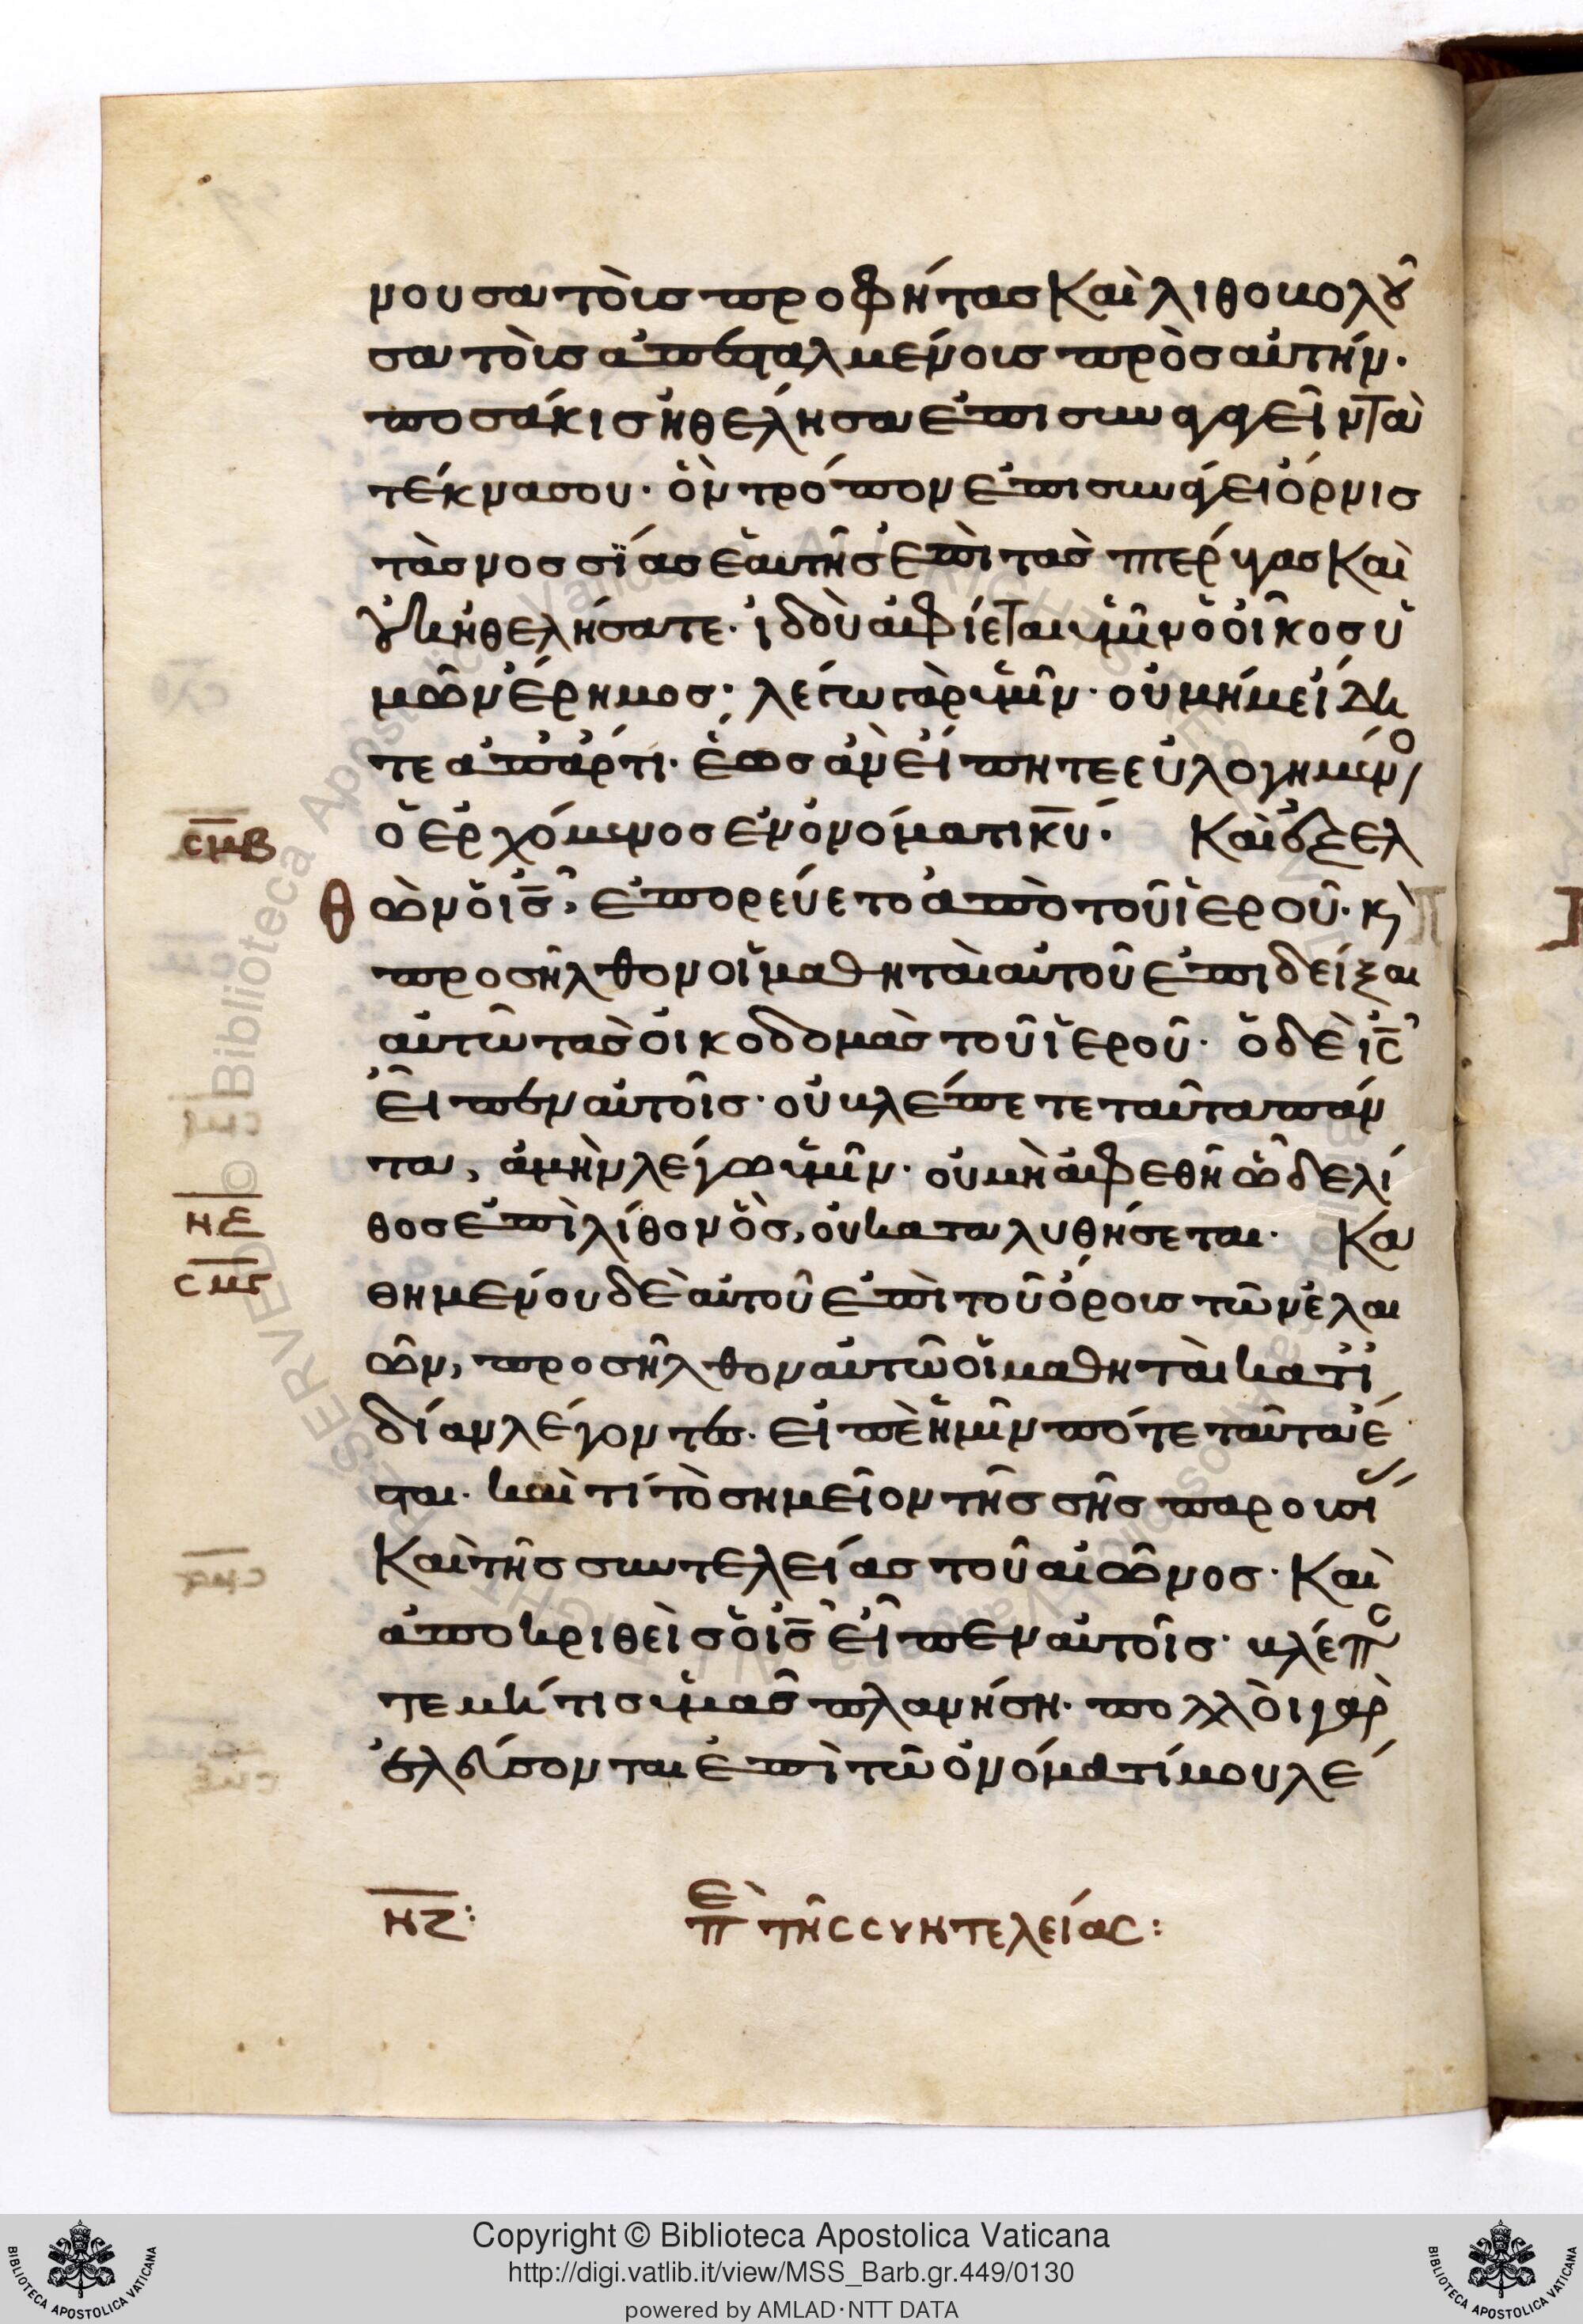 νουσα τοὺς προφήτας καὶ λιθοβολοῦ
σα τοὺς ἀπεσταλμένους πρὸς αὐτήν·
ποσάκις ἠθέλησα ἐπισυναγαγεῖν τὰ
τέκνα σου· ὃν τρόπον ἐπισυνάγει ὄρνις
τὰς νοσσϊὰς ἑαυτῆς ἐπὶ τὰς πτέρυγας καὶ
οὐκ ἠθελήσατε· ἰδοὺ ἀφίεται ὑμῖν ὁ οἶκος ὑ
μῶν ἔρημος· λέγω γὰρ ὑμῖν· οὐ μή με ἴδη
τε ἀπάρτι· ἕως ἂν εἴπητε εὐλογημένο
ὁ ἐρχόμενος ἐν ὀνόματι κ̅υ̅· Καὶ ἐξελ
σμβ
θ
ὼν ὁ ι̅ς̅, ἐπορεύετο ἀπὸ τοῦ ἱεροῦ· κ
προσῆλθον οἱ μαθηταὶ αὐτοῦ ἐπιδεῖξαι
αὐτῶ τὰς οἰκοδομὰς τοῦ ἱεροῦ· ὁ δὲ ι̅ς̅
εἶπεν αὐτοῖς· οὐ βλέπετε ταῦτα πάν
τα, ἀμὴν λέγω ὑμῖν· οὐ μὴ ἀφεθῆ ὧδε λί
θος ἐπὶ λίθον ὃς, οὐ καταλυθήσεται· Κα
η̅ε̅
σμγ
θημένου δὲ αὐτοῦ ἐπὶ τοῦ ὄρους τῶν ἐλαι
ῶν, προσῆλθον αὐτῶ οἱ μαθηταὶ κατ ἰ
δίαν λέγοντες· εἰπὲ ἡμῖν πότε ταῦτα ἔ
σται· καὶ τί τὸ σημεῖον τῆς σῆς παρουσί
καὶ τῆς συντελείας τοῦ αἰῶνος· Καὶ
ἀποκριθεὶς ὁ ι̅ς̅ εἶπεν αὐτοῖς· βλέπε
τε μή τις ὑμᾶς πλανήση· πολλοὶ γὰρ
ἐλεύσονται ἐπὶ τῶ ὀνόματί μου λέ
ΕΠ τῆς συντελείας:
Copyright © Biblioteca Apostolica Vaticana
http://digi.vatlib.it/view/MSS_Barb.gr.449/0130
powered by AMLAD·NTT DATA
BIBLIOTECA APOSTOLICA VATICANA
BIBLIOTECA APOSTOLICA VATICANA